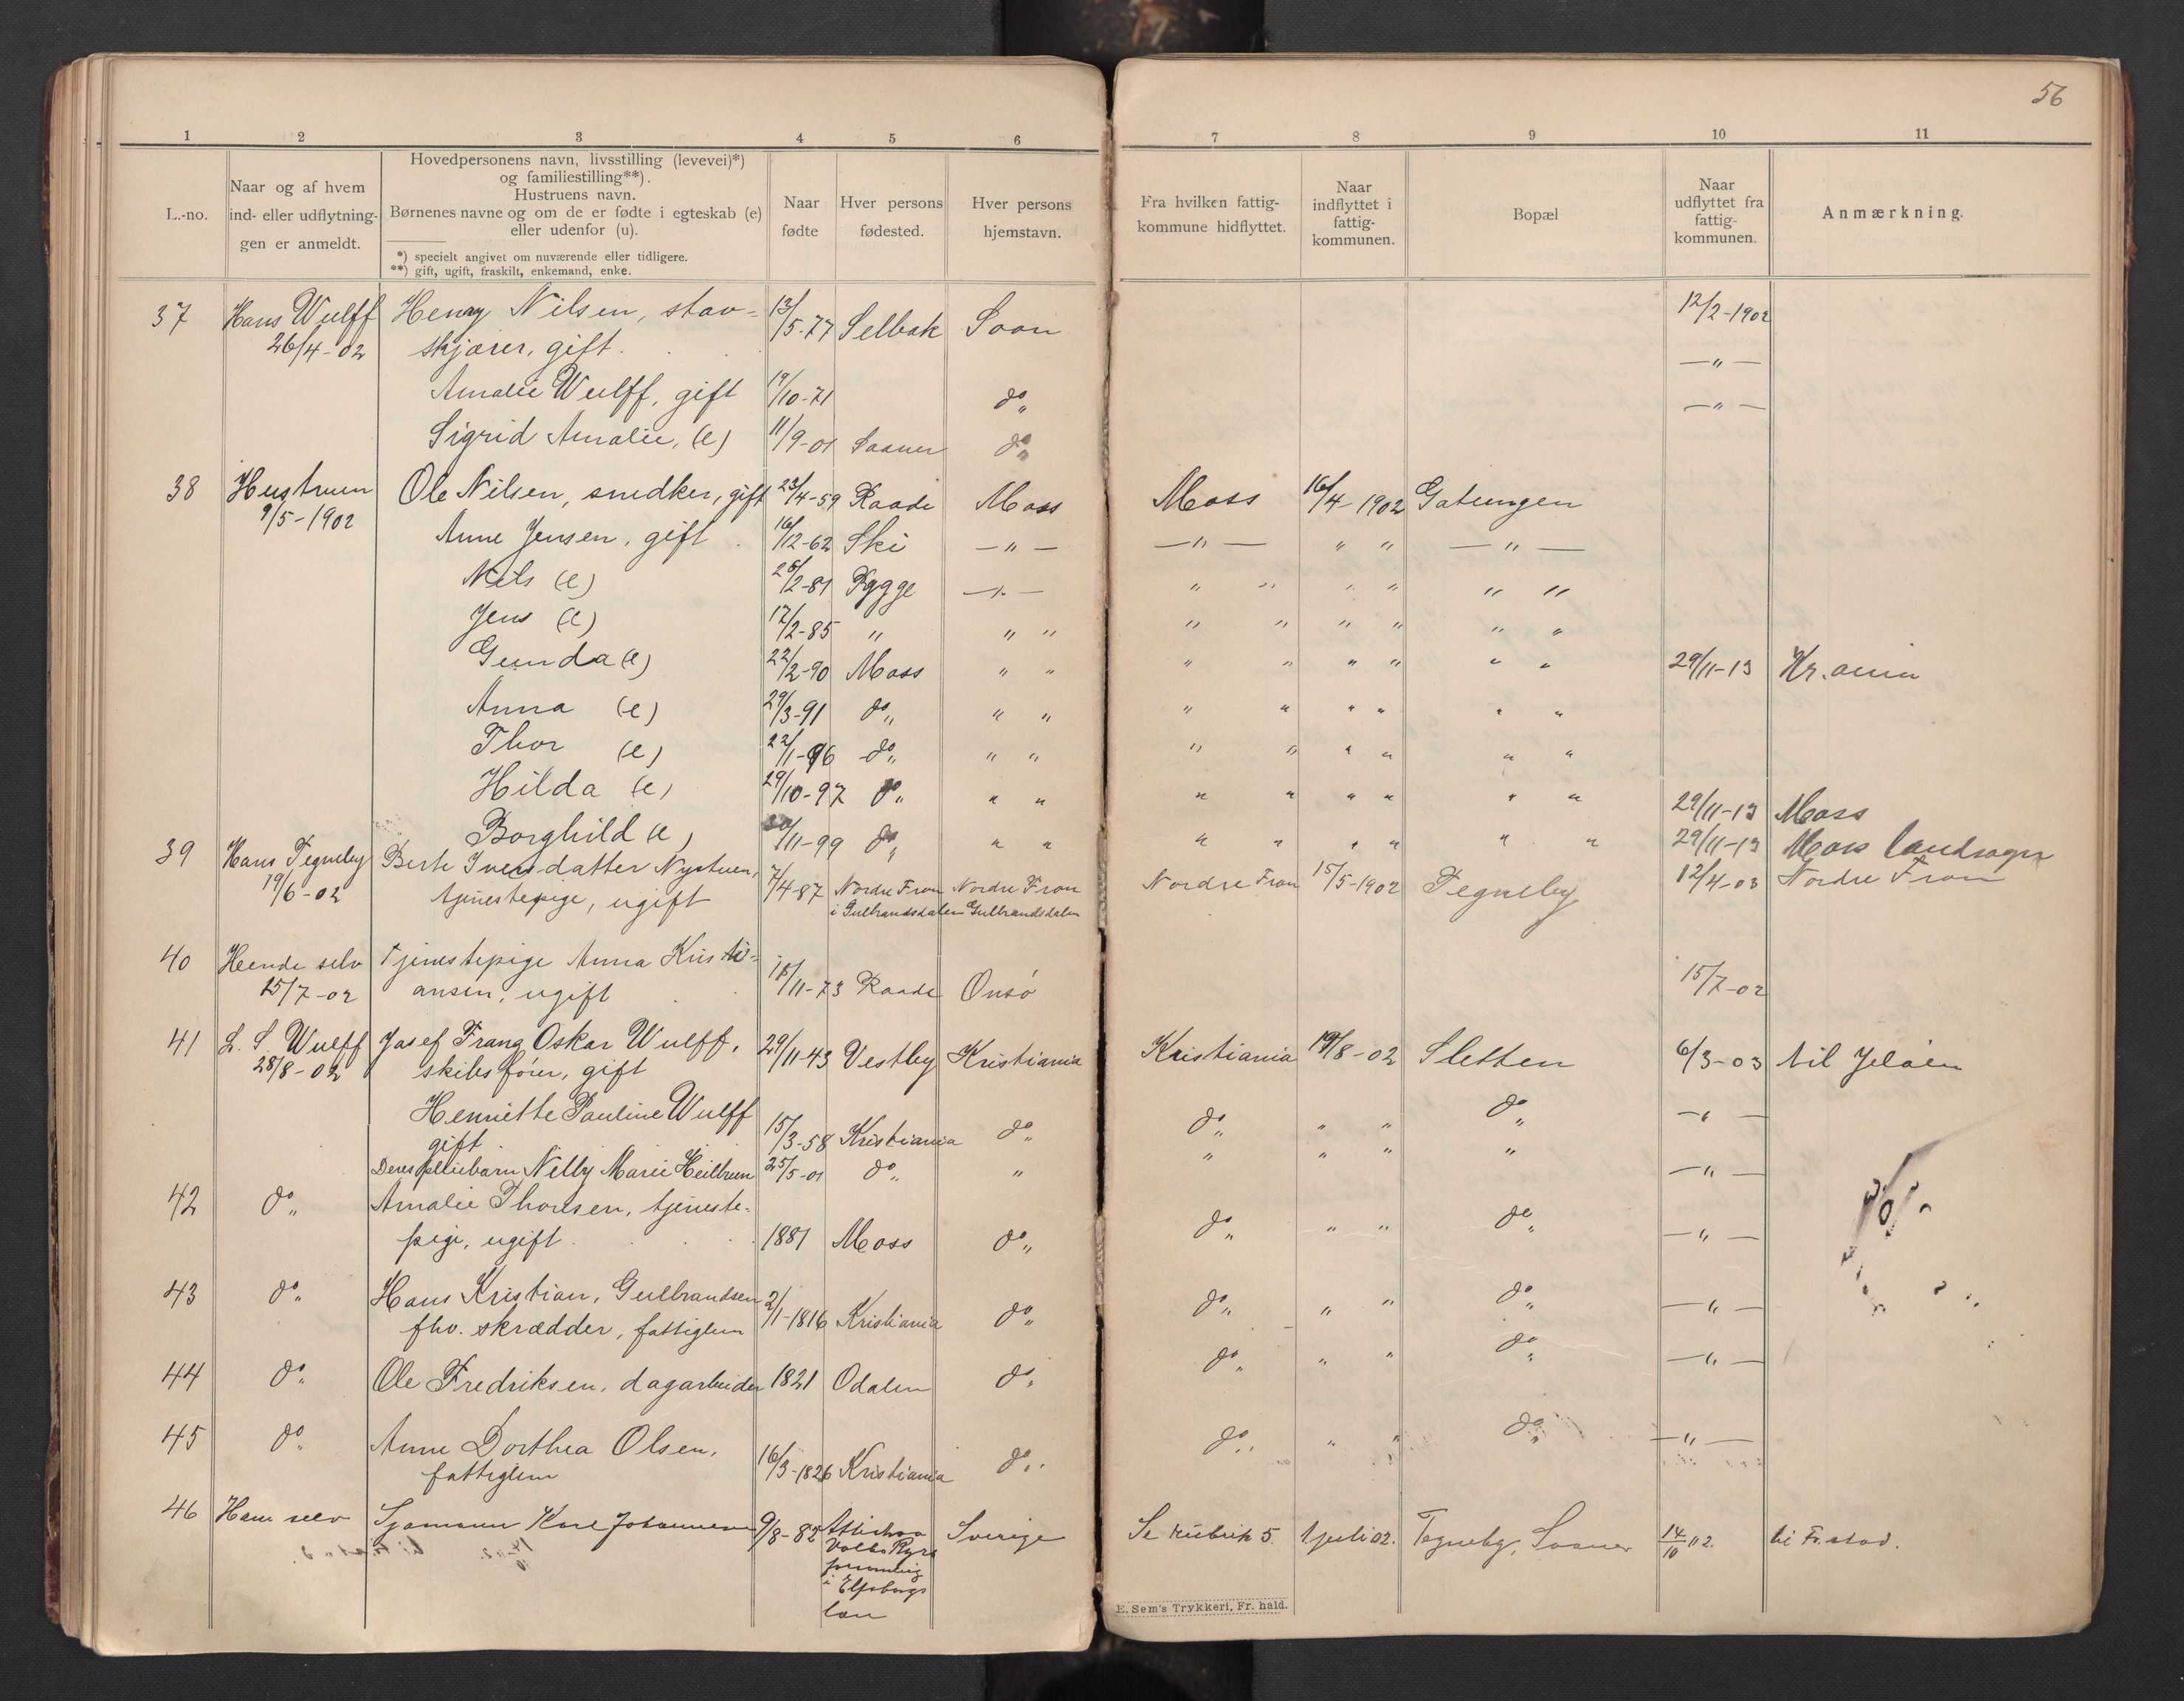 56
1 2 3 4 5 6 7 8 9 10 11
L.-no.
Naar og af hvem
ind- eller udflytnin-
gen er anmeldt.
Hovedpersonens navn, livsstilling (levevei)*)
og familiestilling**).
Hustruens navn.
Børnenes navne og om de er fødte i egteskab (e)
eller udenfor (u).
*) specielt angivet om nuværende eller tidligere.
**) gift, ugift, fraskilt, enkemand, enke.
Naar
fødte
Hver persons
fødested.
Hver persons
hjemstavn.
Fra hvilken fattig-
kommune hidflyttet.
Naar
indflyttet i
fattig-
kommunen.
Bopæl
Naar
udflyttet fra
fattig-
kommunen.
Anmærkning.
37 Hans Wulff Henry Nilsen, stav- 13/5-77 Selbak Soon 12/2-1902
26/4-02 skjærer, gift. — " —
Amalie Wulff, gift 19/10-71 do „ — " —
Sigrid Amalie, (e) 11/9-01 Saaner do „
38 Hustruen Ole Nilsen, snedker, gift 23/4-59 Raade Moss Moss 16/4-1902 Gatungen
9/5-1902 Anne Jensen, gift 16/12-62 Ski — " — — " — " " — " —
Nils (e) 25/2-81 Rygge — " — " " " " " "
Jens (e) 17/2-85 " " " " " " " " "
Gunda (e) 22/2-90 Moss " " " " " " " " 29/11-13 Kr.ania
Anna (e) 29/3-91 do „ " " " " " " " "
Thor (e) 22/1-96 do „ " " " " " " " "
Hilda (e) 29/10-97 do „ " " " " " " " " 29/11-13 Moss
Borghild (e) /11-99 do „ " " " " " " " " 29/11-13 Moss landsogn
39 Hans Tegneby Berte Iversdatter Nystuen, 7/4-87 Nordre Fron Nordre Fron Nordre Fron 15/5-1902 Tegneby 12/4-03 Nordre Fron
19/6-02 tjenestepige, ugift i Gulbrandsdalen Gulbrandsdalen
40 Hende selv Tjenestepige Anna Kristi- 15/7-02
15/7-02 ansen, ugift 18/11-73 Raade Onsø
41 L. S. Wulff Josef Frang Oskar Wulff, 29/11-43 Vestby Kristiania Kristiania 19/8-02 Sletten 6/3-03 til Jeløen
28/8-02 skibsfører, gift
Henriette Pauline Wulff 15/3-58 Kristiania do „ do „ " " do „ — " —
gift
Deres pleiebarn Nelly Marie Heilbrun 25/5-01 do „ " " " " " — " —
42 do „ Amalie Thoresen, tjeneste-
pige, ugift 1881 Moss do „ do „ " " do „ — " —
43 do „ Hans Kristian, Gulbrandsen 2/1-1816 Kristiania do „ do „ " " do „ — " —
fhv. skrædder, fattiglem
44 do „ Ole Fredriksen, dagarbeider 1821 Odalen do „ do „ " " do „ — " —
45 do „ Anne Dorthea Olsen, 16/3-1826 Kristiania do „ do „ " " do „ — " —
fattiglem
46 Ham selv Sjømann Karl Johannesen 9/8-82 Sverige Se Rubrik 5. 1 juli 02. Tegneby, Saaner 14/10 02. til Fr.stad.
i Elfsborgs
län
E. Sem's Trykkeri, Fr.hald.